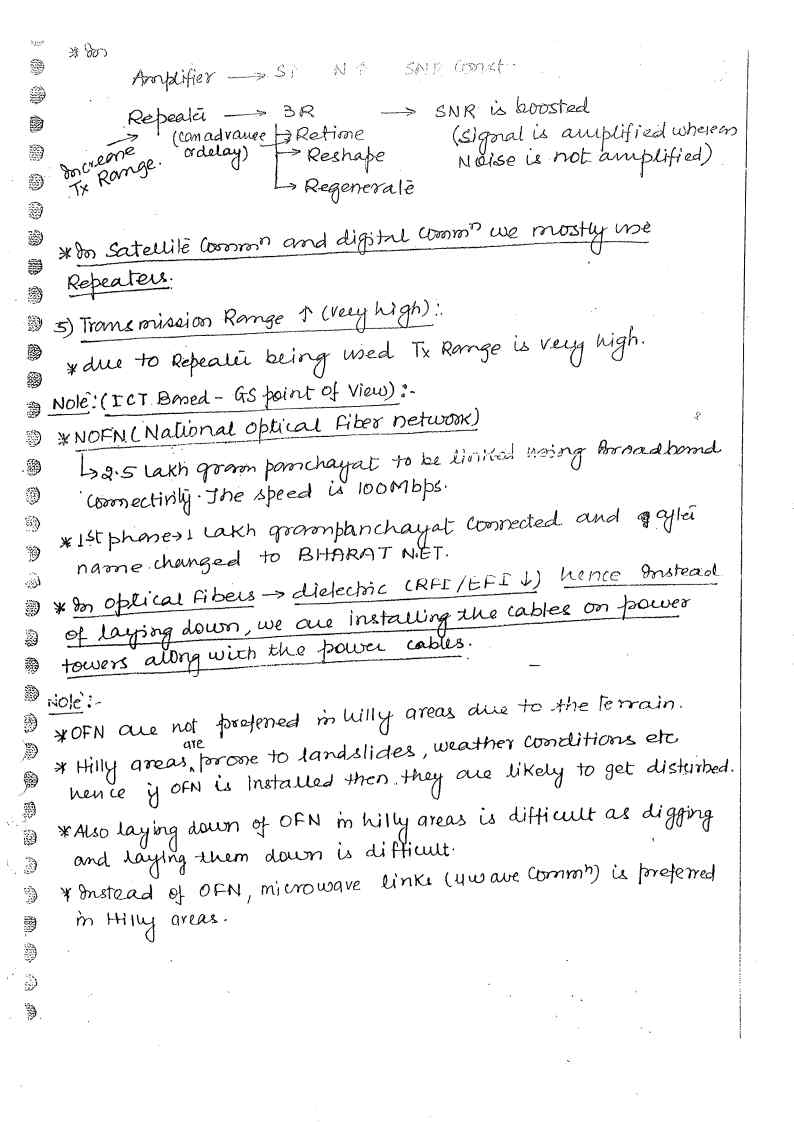 * In
Amplifier → S↑ N↑ SNR Const.
Repeater → 3R → SNR is boosted
(can advance or delay) → Retime (signal is amplified whereas
Increase Tx Range. → Reshape Noise is not amplified)
→ Regenerate
* In Satellite Commⁿ and digital Commⁿ we mostly use
Repeaters.
5) Transmission Range ↑ (very high):
* due to Repeater being used Tx Range is very high.
Note: (ICT Based - GS point of View):-
* NOFN (National Optical Fiber network)
↳ 2.5 Lakh gram panchayat to be linked using Broadband
Connectivity. The speed is 100Mbps.
* 1st phase → 1 Lakh grampanchayat Connected and after
name changed to BHARAT NET.
* In Optical Fibers → dielectric (RFI/EFI ↓) hence Instead
of laying down, we are installing the cables on power
towers along with the power cables.
Note:-
* OFN are not preferred in hilly areas due to the Terrain.
* Hilly areas are prone to landslides, weather conditions etc
hence if OFN is Installed then they are likely to get disturbed.
* Also laying down of OFN in hilly areas is difficult as digging
and laying them down is difficult.
* Instead of OFN, microwave links (μwave Commⁿ) is preferred
in Hilly areas.